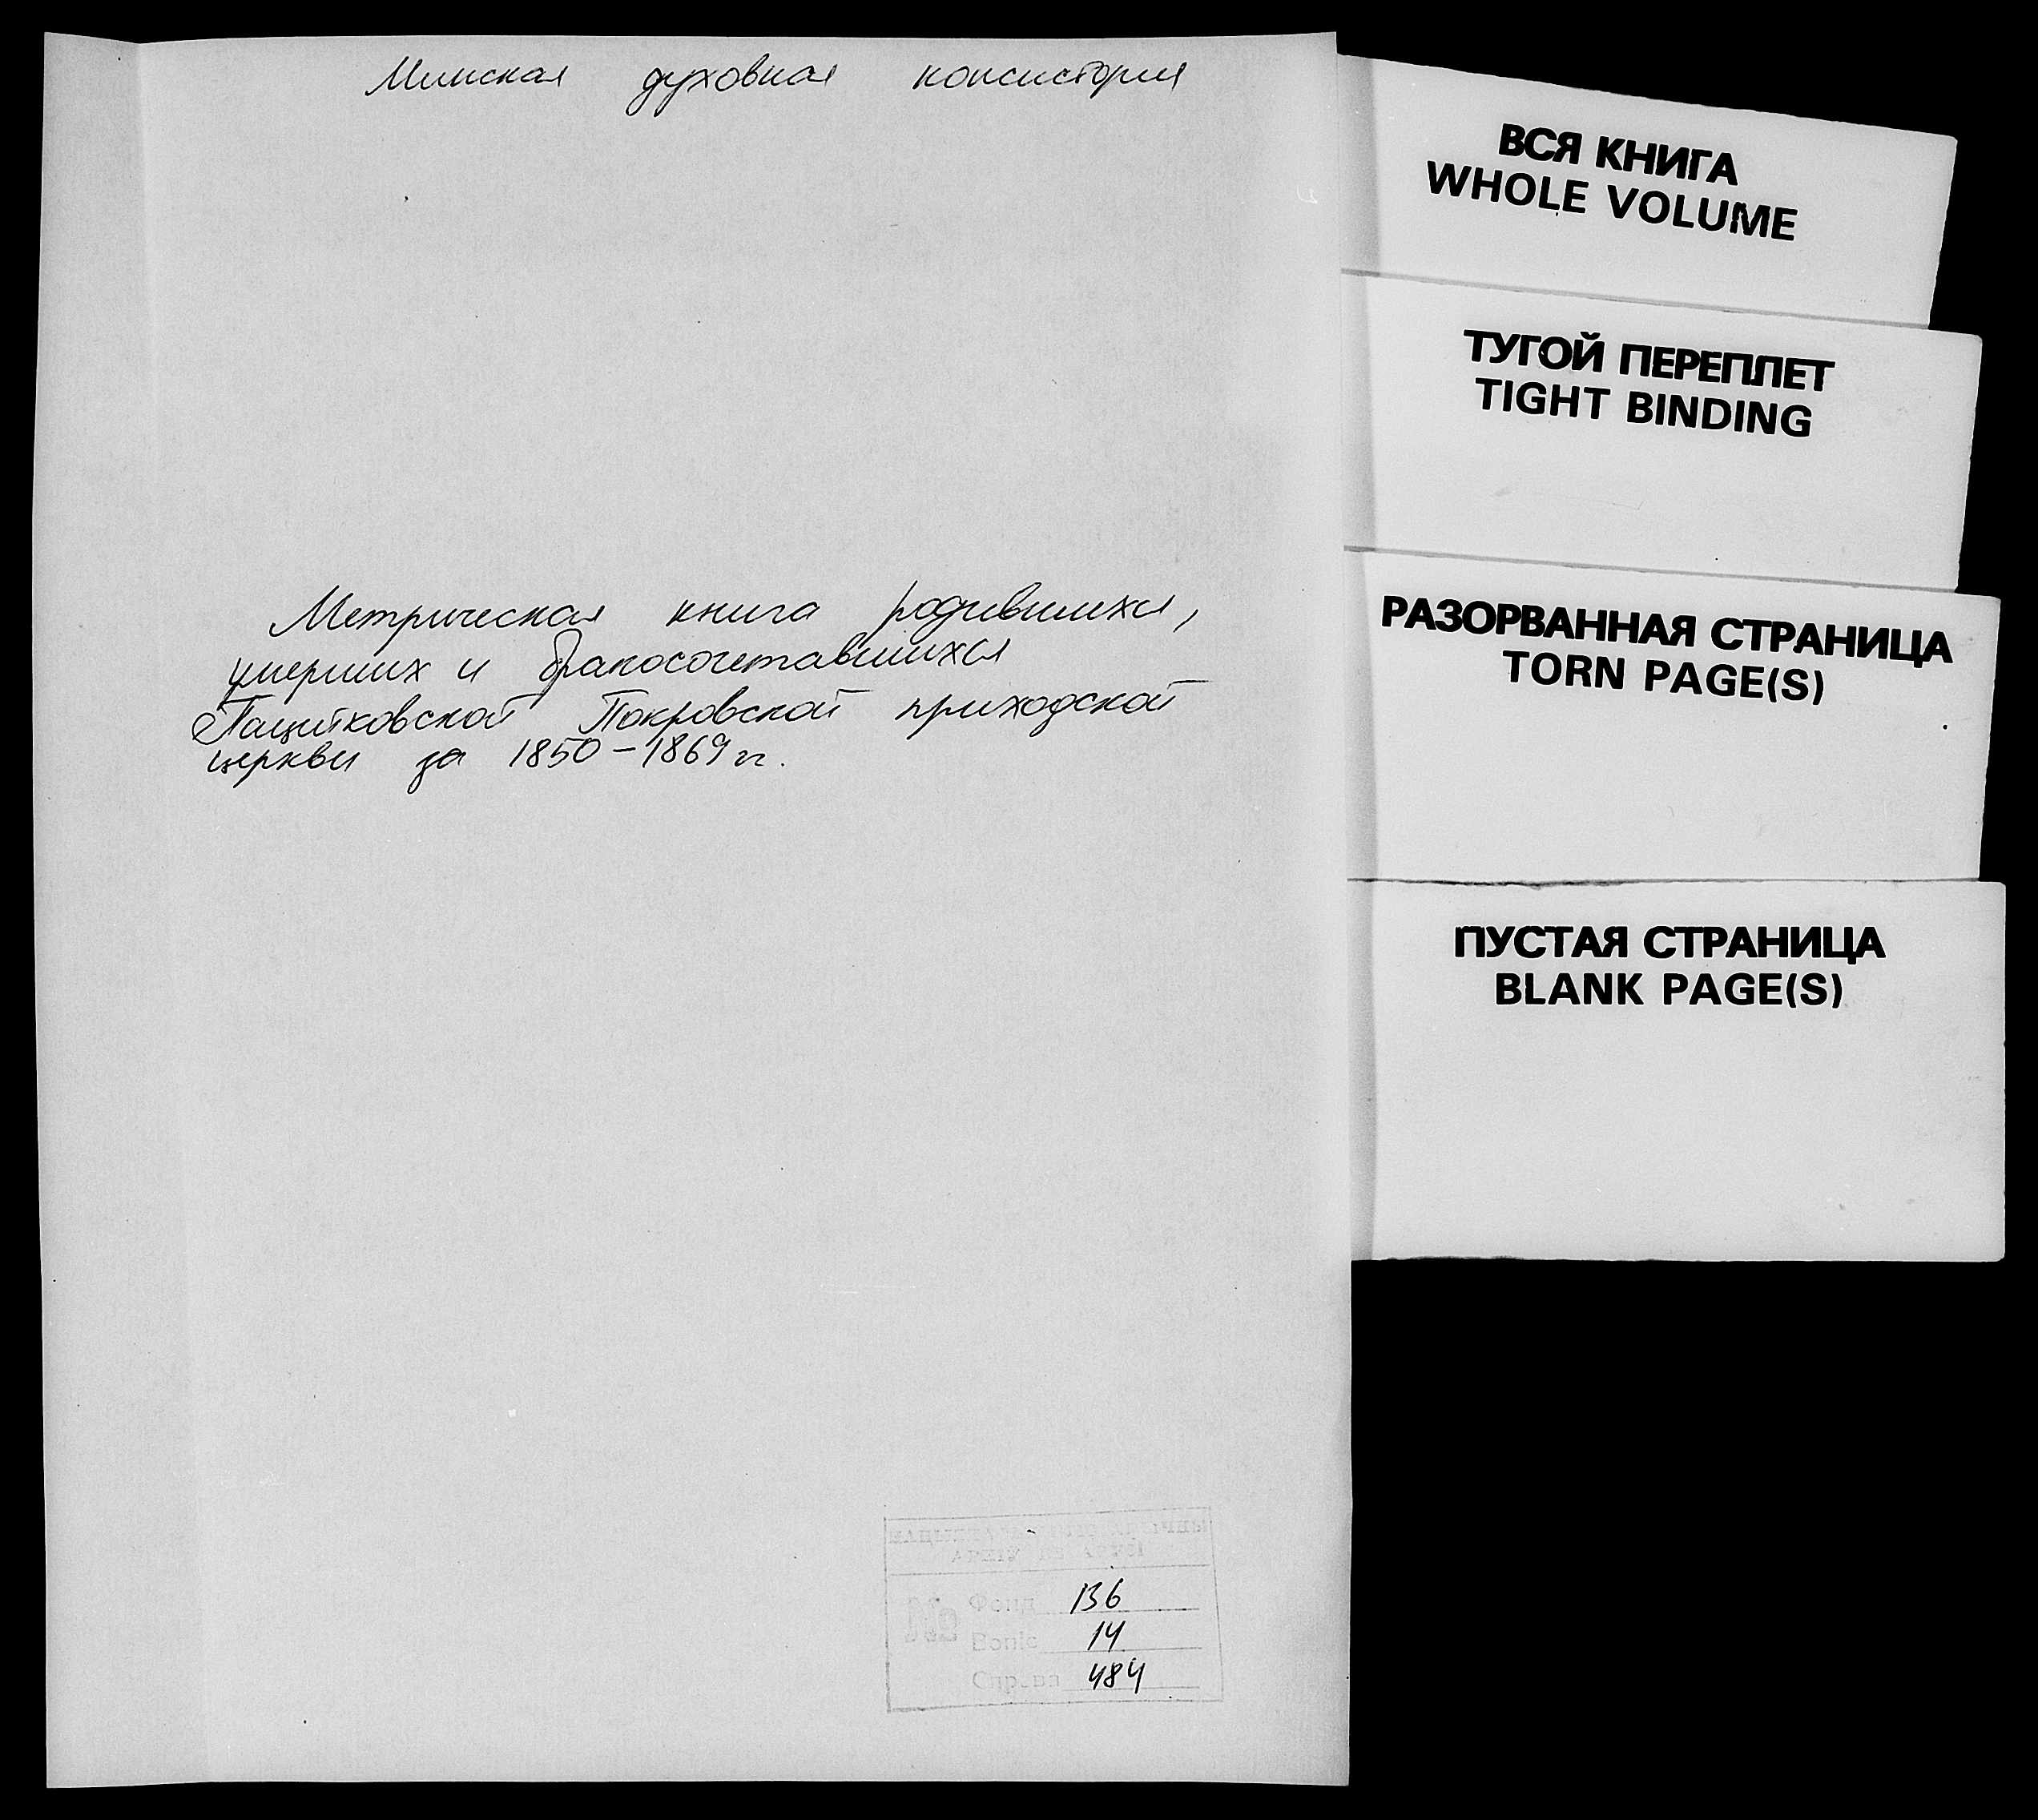 Минская духовная консистория
Метрическая книга родившихся,
умерших и бракосочетавшихся
Пацейковской Покровской приходской
церкви за 1850–1869 гг.
НАЦЫЯНАЛЬНЫ ГІСТАРЫЧНЫ
АРХІЎ БЕЛАРУСІ
№ Фонд 136
Вопіс 14
Справа 484
ВСЯ КНИГА
WHOLE VOLUME
ТУГОЙ ПЕРЕПЛЕТ
TIGHT BINDING
РАЗОРВАННАЯ СТРАНИЦА
TORN PAGE(S)
ПУСТАЯ СТРАНИЦА
BLANK PAGE(S)